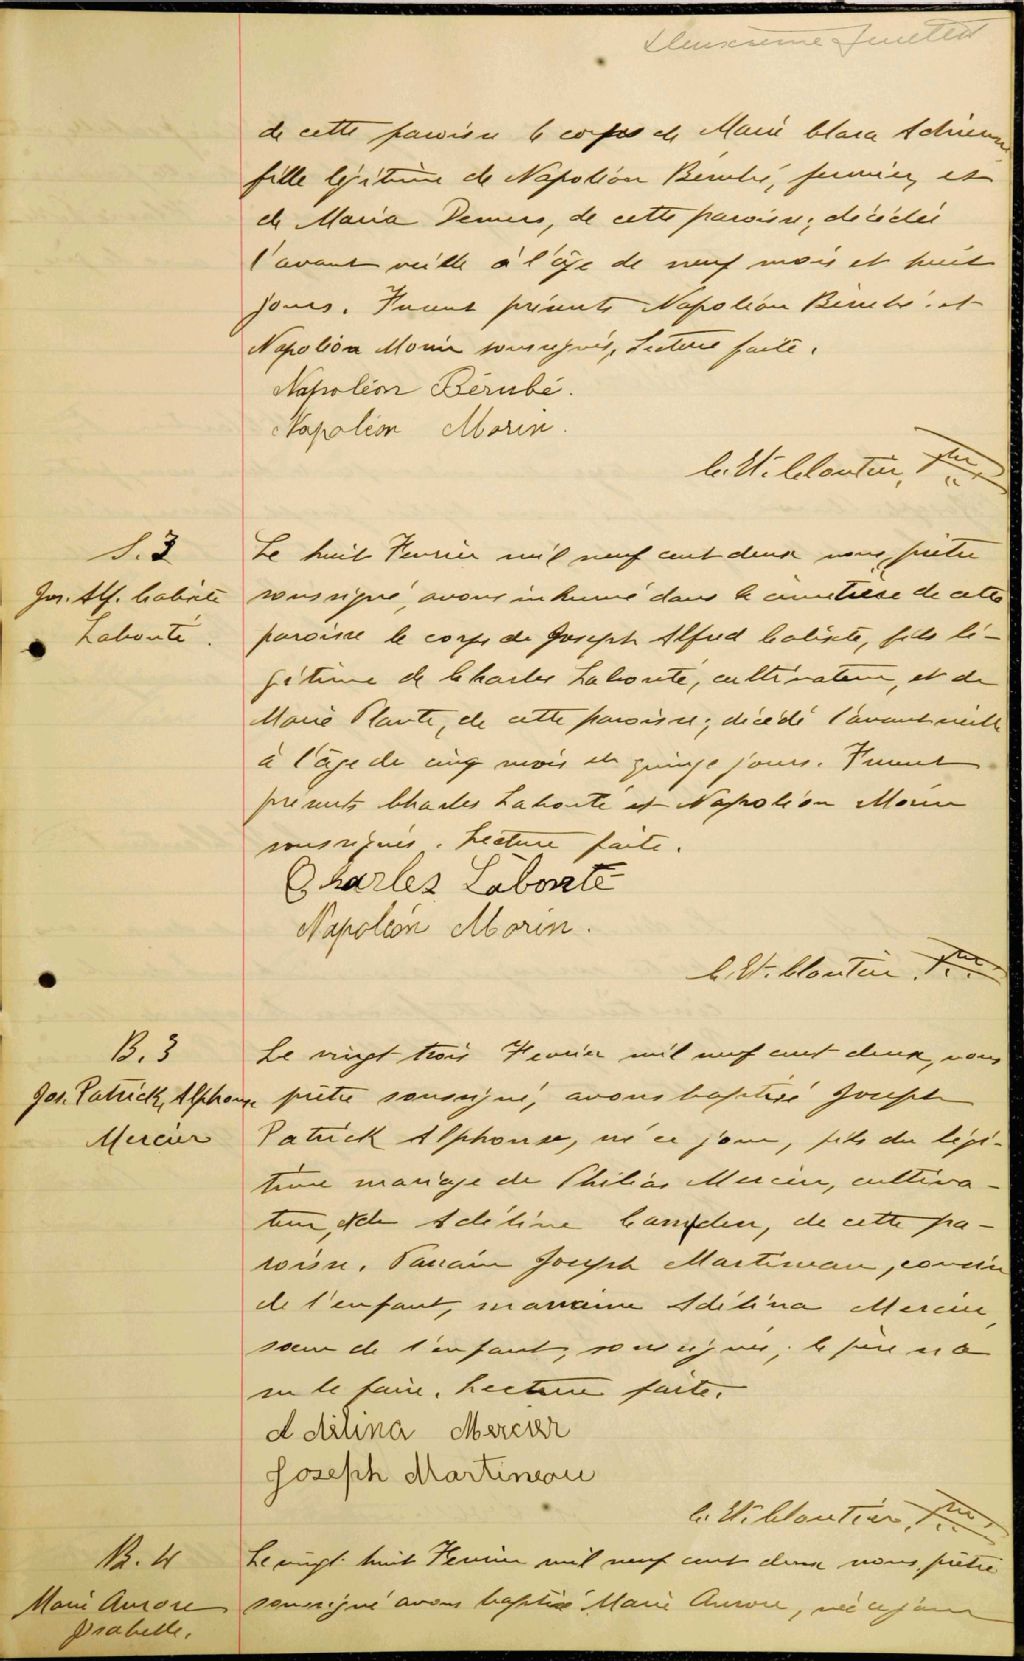 Deuxième feuillet
de cette paroisse le corps de Marie Clara Adrienne,
fille légitime de Napoléon Bérubé, fermier, et
de Maria Demers, de cette paroisse; décédée
l'avant veille à l'âge de neuf mois et huit
jours. Furent présents Napoléon Bérubé et
Napoléon Morin soussignés. Lecture faite.
Napoléon Bérubé.
Napoléon Morin.
C. Et. Cloutier, ptre
S. 3
Jos. Alf. Calixte
Labonté.
Le huit Fevrier mil neuf cent deux nous, prêtre
soussigné, avons inhumé dans le cimetière de cette
paroisse le corps de Joseph Alfred Calixte, fils lé-
gitime de Charles Labonté, cultivateur, et de
Marie Plante, de cette paroisse; décédé l'avant veille
à l'âge de cinq mois et quinze jours. Furent
présents Charles Labonté et Napoléon Morin
soussignés. Lecture faite.
Charles Labonté
Napoléon Morin.
C. Et. Cloutier, ptre
B. 3
Jos. Patrick, Alphonse
Mercier
Le vingt trois Fevrier mil neuf cent deux, nous
prêtre soussigné, avons baptisé Joseph
Patrick Alphonse, né ce jour, fils du légi-
time mariage de Philias Mercier, cultiva-
teur, et de Adéline Camden, de cette pa-
roisse. Parrain Joseph Martineau, cousin
de l'enfant, marraine Adélina Mercier,
sœur de l'enfant, soussignés; le père n'a
su le faire. Lecture faite.
Adélina Mercier
Joseph Martineau
C. Et. Cloutier, ptre
B. 4
Marie Aurore
Isabelle.
Le vingt huit Fevrier mil neuf cent deux nous, prêtre
soussigné avons baptisé Marie Aurore, née ce jour